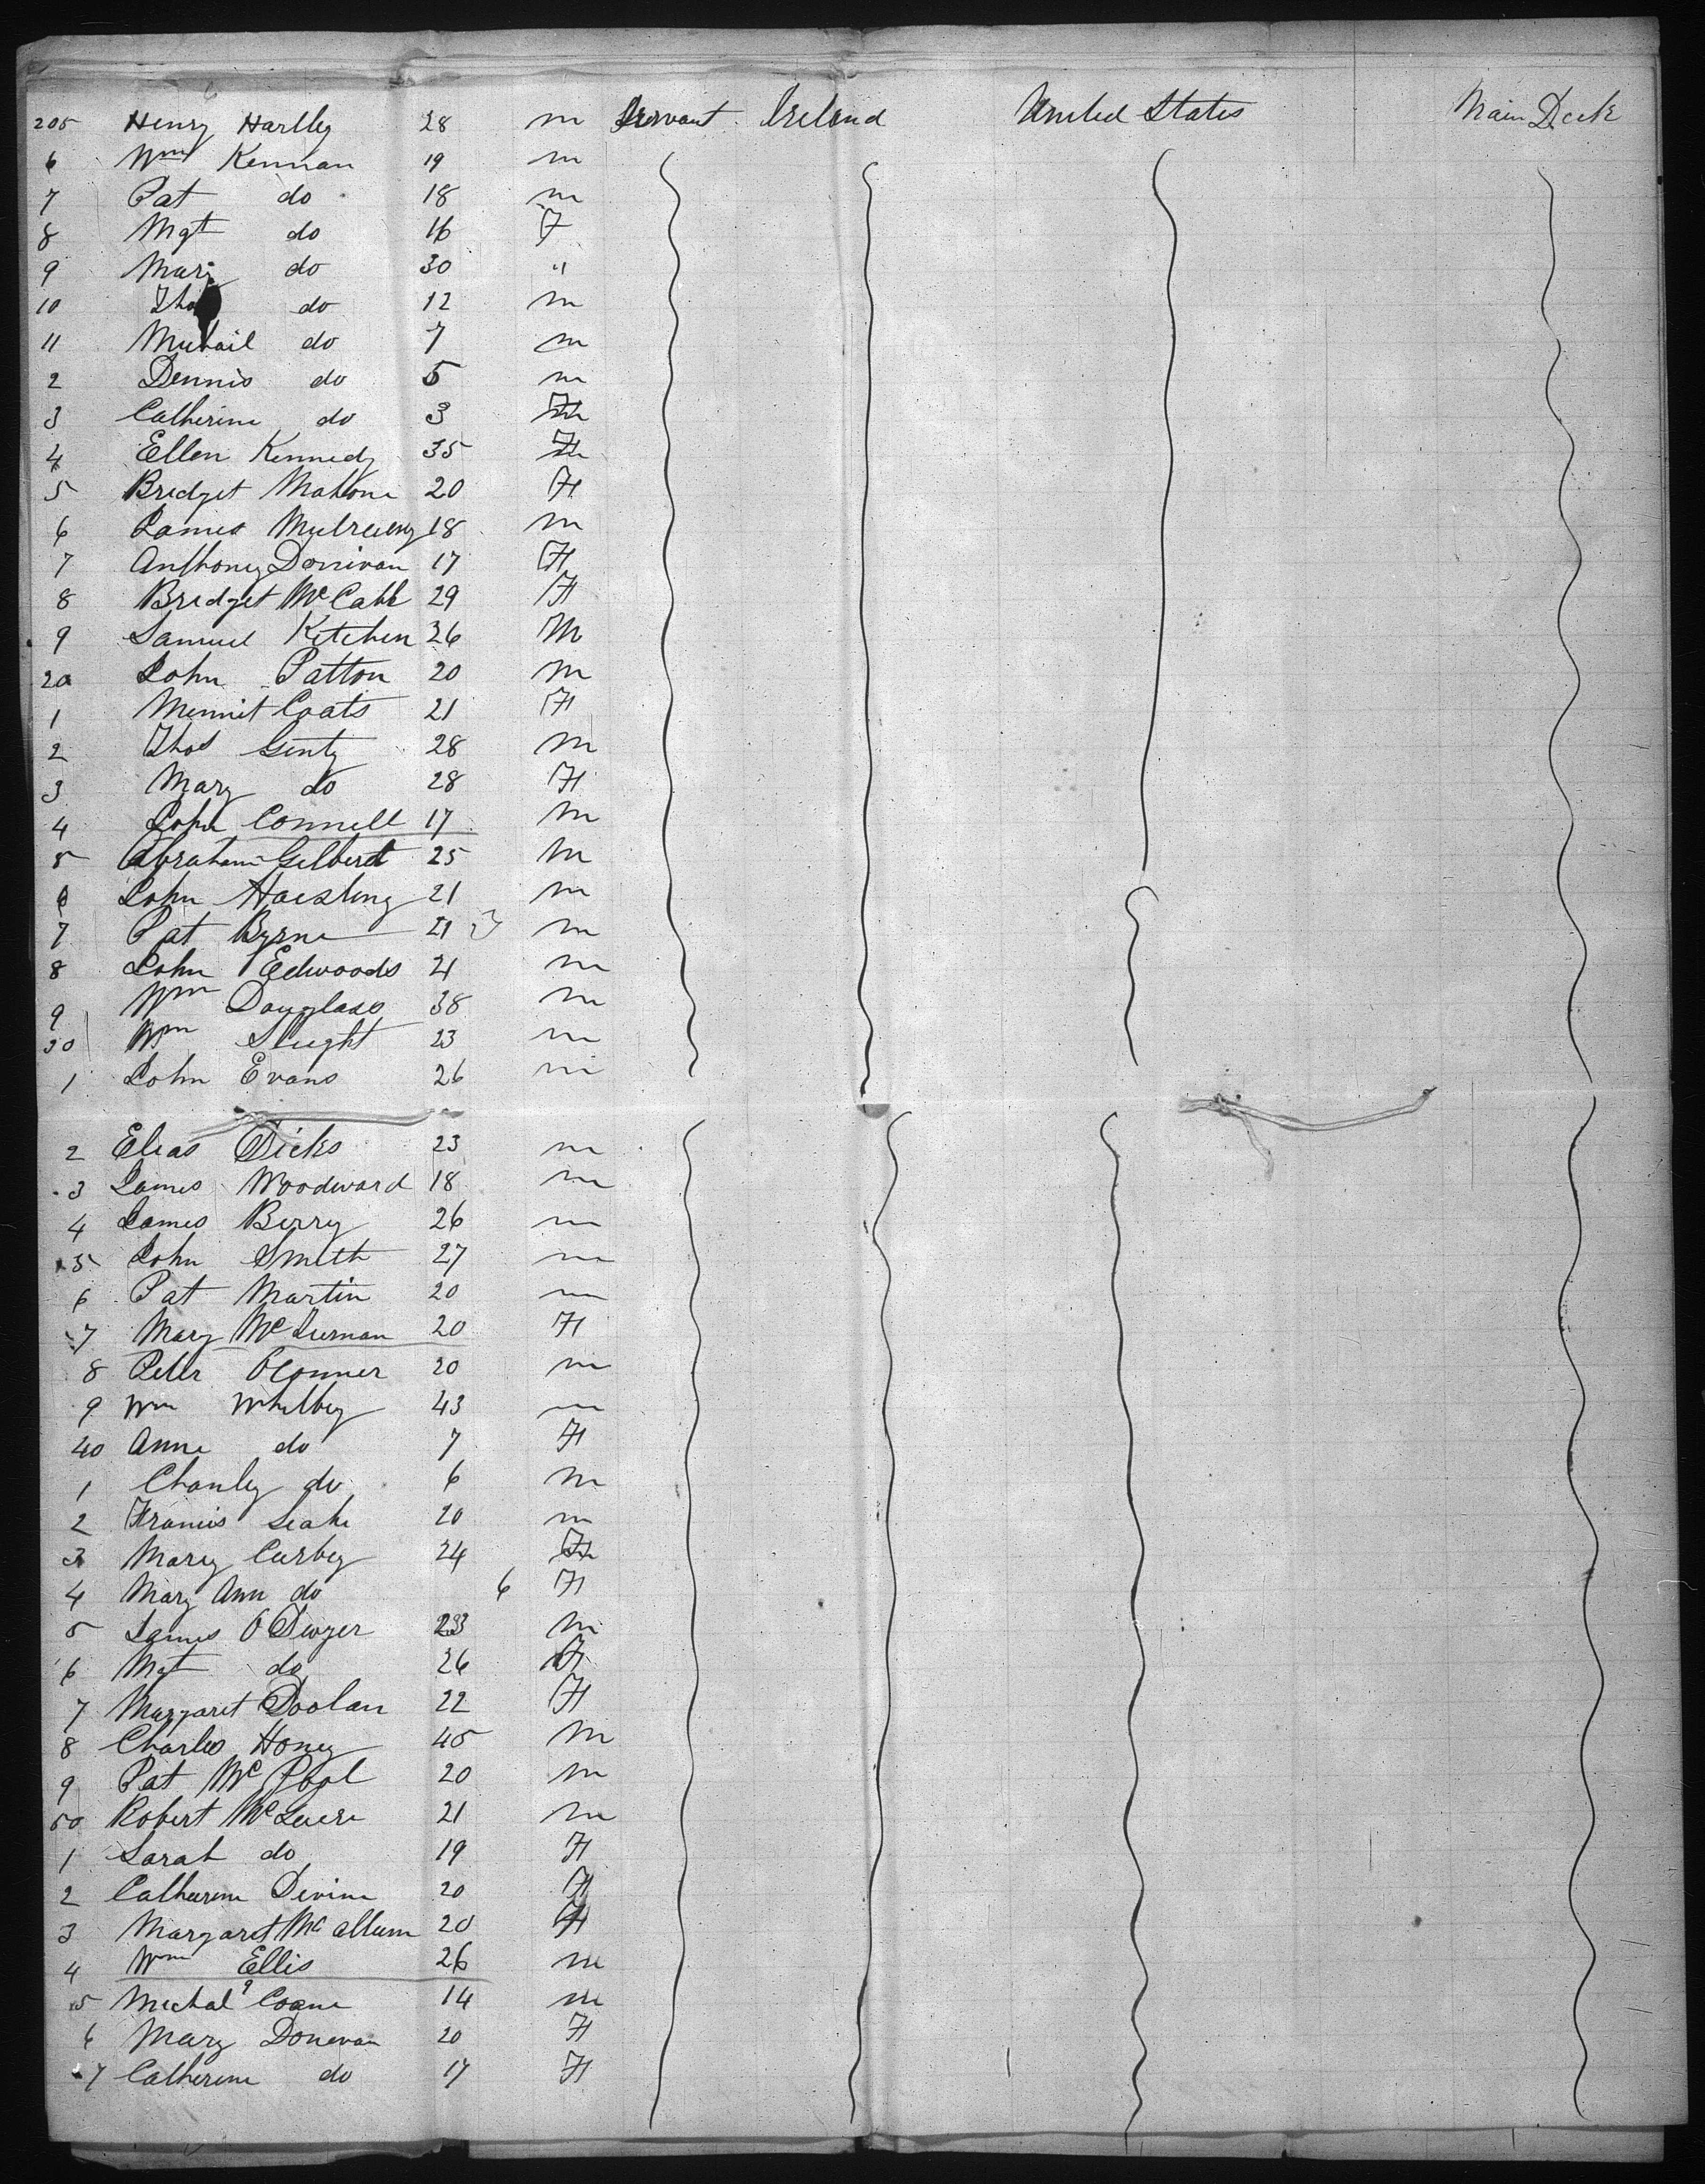 205 Henry Hartley 28 m Servant Ireland United States Main Deck
6 Wm Kennan 19 m
7 Pat do 18 m
8 Mgt do 16 F
9 Mary do 30 "
10 Tho do 12 m
11 Michail do 7 m
2 Dennis do 5 m
3 Catherine do 3 F
4 Ellen Kennedy 35 F
5 Bridget Mahone 20 F
6 James 18 m
7 Anthony Donivan 17 F
8 Bridget McCabb 29 F
9 Samuel Ketchen 26 M
20 John Patton 20 m
1 Coats 21 F
2 Thos Genty 28 m
3 Mary do 28 F
4 John Connell 17 m
5 Abraham Gilbert 25 m
6 John 21 m
7 Pat Byrne 21 m
8 John Edwoods 21 m
9 Wm Douglass 38 m
30 Wm Slught 23 m
1 John Evans 26 m
2 Elias Dicks 23 m
3 James Woodward 18 m
4 James Berry 26 m
5 John Smith 27 m
6 Pat Martin 20 m
7 Mary 20 F
8 Peter OConner 20 m
9 Wm Whilbey 43 m
40 Anne do 7 F
1 Charley do 6 m
2 Francis Leahe 20 m
3 Mary Curbey 24 F
4 Mary Ann do 6 F
5 James O Dwyer 23 m
6 Mgt do 26 F
7 Margaret Doolan 22 F
8 Charles Honey 45 m
9 Pat Mc 20 m
50 Robert 21 m
1 Sarah do 19 F
2 Catherine Devine 20 F
3 Margaret McAllum 20 F
4 Wm Ellis 26 m
5 Michal Coane 14 m
6 Mary Donevan 20 F
7 Catherine do 17 F